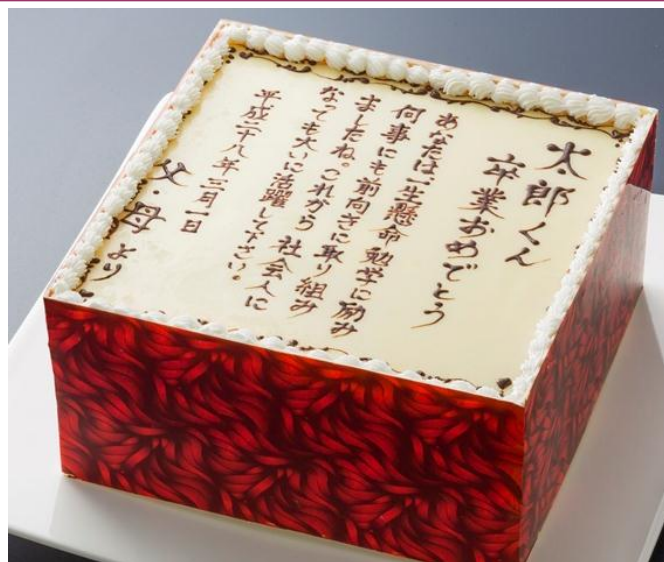 太郎くん
卒業おめでとう
あなたは一生懸命勉学に励み
何事にも前向きに取り組み
ましたね。これから社会人に
なっても大いに活躍して下さい。
平成二十八年三月一日
父・母より